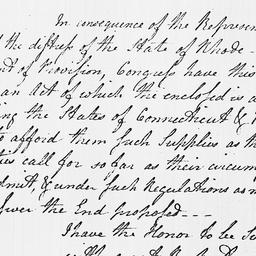 In consequence of the Represen
the distress of the State of Rhode-
nt of Provision, Congress have this
an Act of which the enclosed is a
ing the States of Connecticut &
afford them such Supplies as th
call for so far as their circum
dmit, & under such Regulations as m
swer the End proposed---
I have the Honor to be